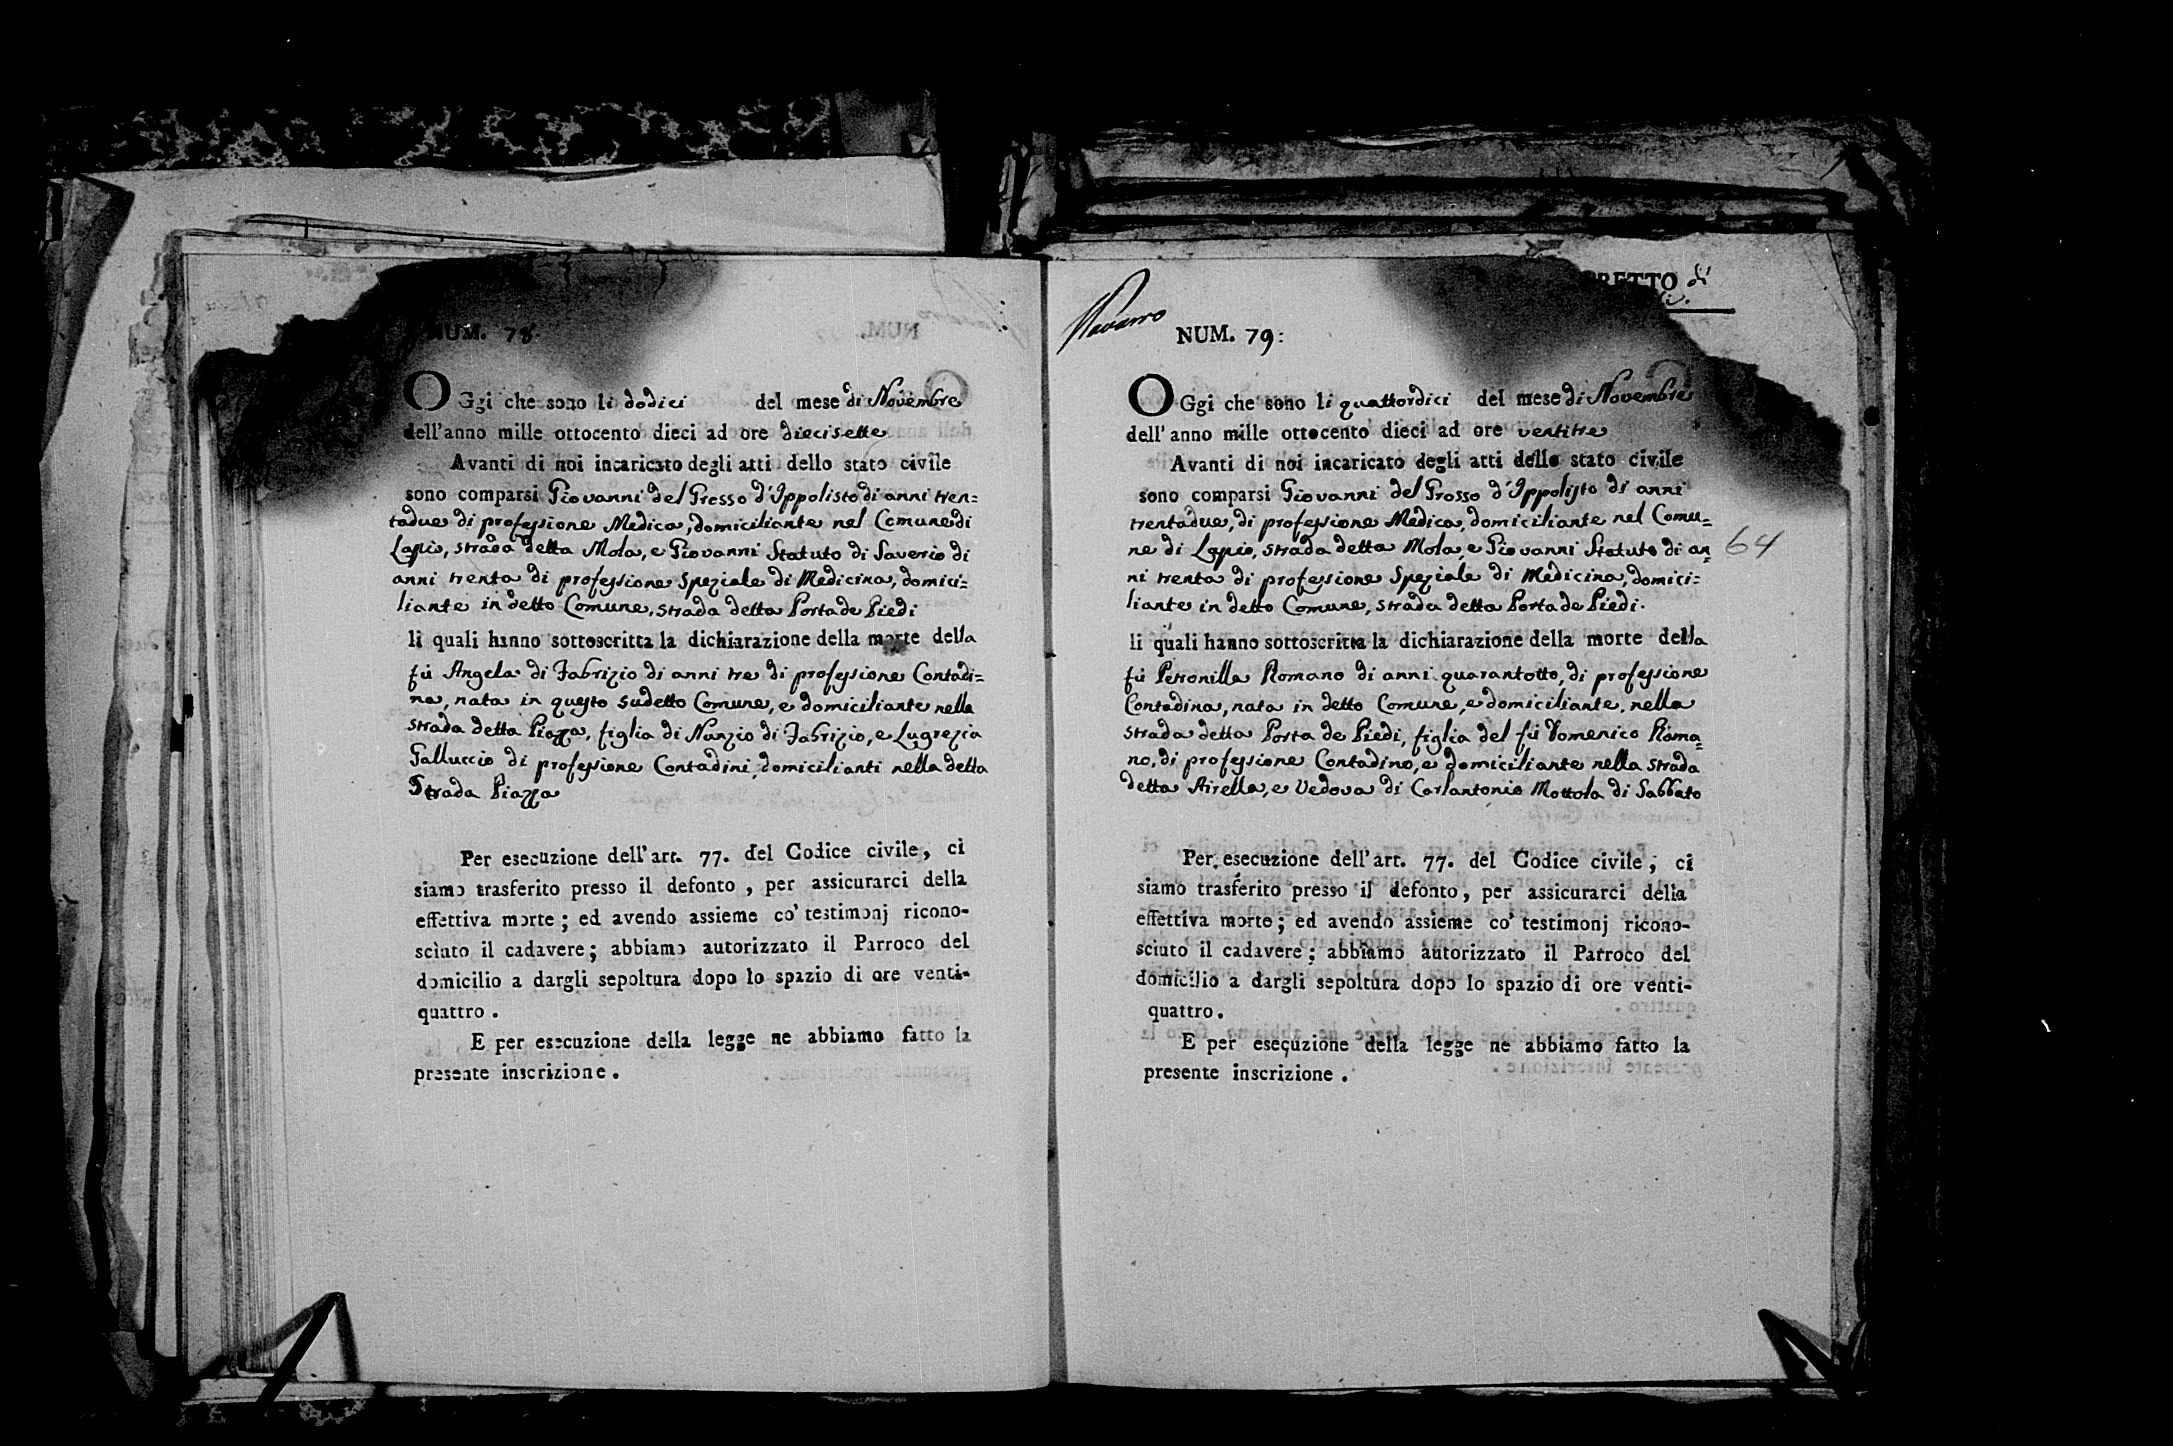 NUM. 78.
OGgi che sono li dodici del mese di Novembre
dell'anno mille ottocento dieci ad ore diecisette
Avanti di noi incaricato degli atti dello stato civile
sono comparsi Giovanni del Grosso d'Ippolisto di anni tren=
tadue di professione Medica, domiciliante nel Comune di
Lapio, strada detta Mola, e Giovanni Statuto di Saverio di
anni trenta di professione Speziale di Medicina, domici=
liante in detto Comune, strada detta Porta de Piedi
li quali hanno sottoscritta la dichiarazione della morte della
fù Angela di Fabrizio di anni tre di professione Contadi=
na, nata in questo sudetto Comune, e domiciliante nella
strada detta Piazza, figlia di Nunzio di Fabrizio, e Lugrezia
Galluccio di professione Contadini, domicilianti nella detta
Strada Piazza
Per esecuzione dell'art. 77. del Codice civile, ci
siamo trasferito presso il defonto, per assicurarci della
effettiva morte; ed avendo assieme co' testimonj ricono-
sciuto il cadavere; abbiamo autorizzato il Parroco del
domicilio a dargli sepoltura dopo lo spazio di ore venti-
quattro.
E per esecuzione della legge ne abbiamo fatto la
presente inscrizione.
RETTO di
Navarro
NUM. 79:
OGgi che sono li quattordici del mese di Novembre
dell'anno mille ottocento dieci ad ore ventitre
Avanti di noi incaricato degli atti dello stato civile
sono comparsi Giovanni del Grosso d'Ippolisto di anni
trentadue, di professione Medica, domiciliante nel Comu=
ne di Lapio, strada detta Mola, e Giovanni Statuto di an=
64
ni trenta di professione Speziale di Medicina, domici=
liante in detto Comune, strada detta Porta de Piedi.
li quali hanno sottoscritta la dichiarazione della morte della
fù Petronilla Romano di anni quarantotto, di professione
Contadina, nata in detto Comune, e domiciliante, nella
strada detta Porta de Piedi, figlia del fù Domenico Roma=
no, di professione Contadino, e domiciliante nella strada
detta Airella, e Vedova di Carlantonio Mottola di Sabbato
Per esecuzione dell'art. 77. del Codice civile, ci
siamo trasferito presso il defonto, per assicurarci della
effettiva morte; ed avendo assieme co' testimonj ricono-
sciuto il cadavere; abbiamo autorizzato il Parroco del
domicilio a dargli sepoltura dopo lo spazio di ore venti-
quattro.
E per esecuzione della legge ne abbiamo fatto la
presente inscrizione.